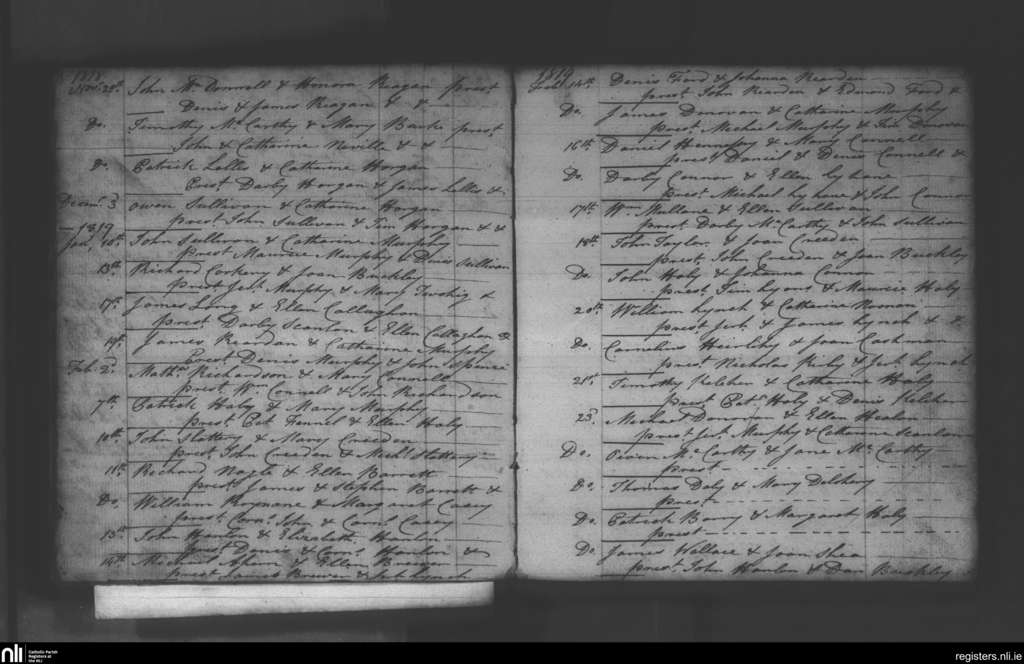 1818
Novr. 28th John McDonnell & Honora Reagan prest
Denis & James Reagan & &
Do. Timothy McCarthy & Mary Burke prest
John & Catharine Neville & &
Do. Patrick Lalles & Catharine Horgan
Prest Darby Horgan & James Lalles &
Decemr. 3 Owen Sullivan & Catharine Horgan
prest John Sullivan & Tim Horgan & &
1819
Jany. 10th John Sullivan & Catharine Murphy
Prest Maurice Murphy & Denis Sullivan
13th Richard Corkery & Joan Buckley
prest Jerh. Murphy & Mary Twohig &
17th James Long & Ellen Callaghan
prest Darby Scanlon & Ellen Callaghan &
19th James Reardan & Catharine Murphy
Prest Denis Murphy & John Spence
Feb. 2d Matths. Richardson & Mary Connell
prest Wm. Connell & John Richardson
7th Patrick Haly & Mary Murphy
prest Pat Fennel & Ellen Haly
10th John Slattery & Mary Creedon
prest John Creedon & Michl. Slattery
11th Richard Nagle & Ellen Barrett
prest James & Stephen Barrett &
Do. William & Margaret Casey
prest Corns. John & Corns. Casey
13th John Hanlon & Elizabeth Hanlon
prest Denis & Corns. Hanlon &
14th Michael Ahern & Ellen Brewer
prest James Brewer & Jerh. Lynch
1819
Feb. 14th Denis Ford & Johanna Rearden
prest John Rearden & Edmond Ford &
Do. James Donovan & Catharine Murphy
prest Michael Murphy & Tim Donovan
16th Daniel Hennessy & Mary Connell
prest Daniel & Denis Connell &
Do. Darby Connor & Ellen Lyhane
Prest Michael Lyhane & John Connor
17th Wm. Mullane & Ellen Sullivan
prest Darby McCarthy & John Sullivan
18th John Taylor & Joan Creedon
prest John Creedon & Joan Buckley
Do. John Haly & Johanna Connor
prest Tim Lyons & Maurice Haly
20th William Lynch & Catharine Noonan
prest Jerh. & James Lynch & &
Do. Cornelius & Joan Cashman
prest Nicholas Kirby & Jerh. Lynch
21st Timothy Keleher & Catharine Haly
prest Patk. Haly & Denis Keleher
23d Michael Donovan & Ellen Healy
prest Jerh. Murphy & Catharine Scanlon
Do. Owen McCarthy & Jane McCarthy
prest
Do. Thomas Daly & Mary Delehery
prest
Do. Patrick Barry & Margaret Haly
prest
Do. James Wallace & Joan Shea
prest John Hanlon & Dan Buckley
nli
Catholic Parish
Registers at
the NLI
registers.nli.ie